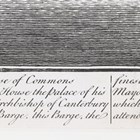 se of Commons
House the palace of his
rchbishop of Canterbury
Barge, this Barge, the
fines
Mayo
which
atten